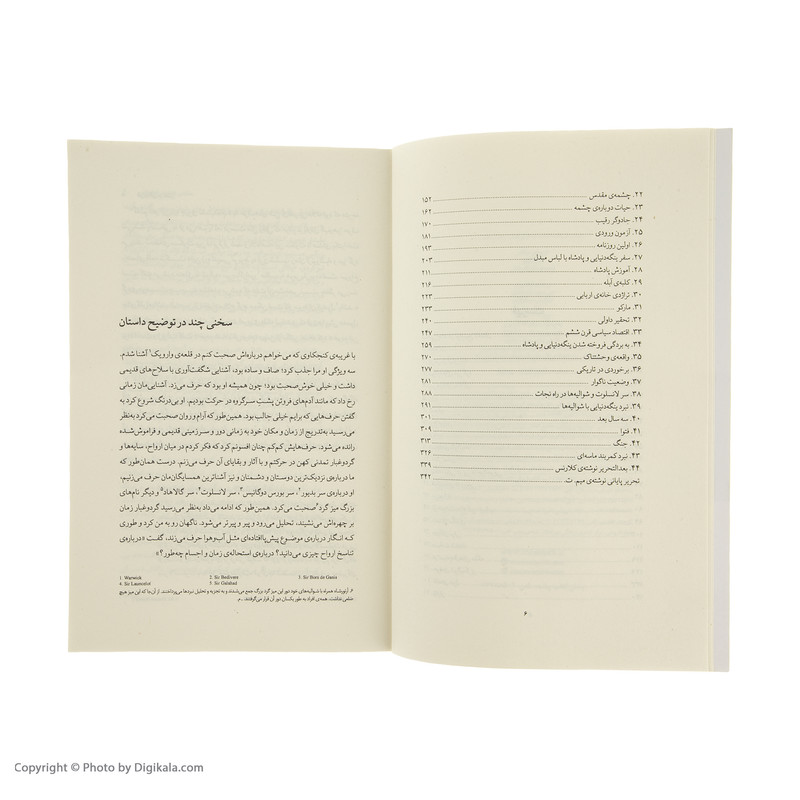 ۲۲. چشمه‌ی مقدس ۱۵۲
۲۳. حیات دوباره‌ی چشمه ۱۶۲
۲۴. جادوگر رقیب ۱۷۰
۲۵. آزمون ورودی ۱۸۱
۲۶. اولین روزنامه ۱۹۳
۲۷. سفر ینگه‌دنیایی و پادشاه با لباس مبدل ۲۰۳
۲۸. آموزش پادشاه ۲۱۱
۲۹. کلبه‌ی آبله ۲۱۶
۳۰. تراژدی خانه‌ی اربابی ۲۲۳
۳۱. مارکو ۲۳۳
۳۲. تحقیر داولی ۲۴۰
۳۳. اقتصاد سیاسی قرن ششم ۲۴۷
۳۴. به بردگی فروخته شدن ینگه‌دنیایی و پادشاه ۲۵۹
۳۵. واقعه‌ی وحشتناک ۲۷۰
۳۶. برخوردی در تاریکی ۲۷۷
۳۷. وضعیت ناگوار ۲۸۱
۳۸. سر لانسلوت و شوالیه‌ها در راه نجات ۲۸۸
۳۹. نبرد ینگه‌دنیایی با شوالیه‌ها ۲۹۱
۴۰. سه سال بعد ۳۰۱
۴۱. فتوا ۳۰۹
۴۲. جنگ ۳۱۳
۴۳. نبرد کمربند ماسه‌ای ۳۲۶
۴۴. بعدالتحریر نوشته‌ی کلارنس ۳۳۹
تحریر پایانی نوشته‌ی میم. ت. ۳۴۲
۶
سخنی چند در توضیح داستان
با غریبه‌ی کنجکاوی که می‌خواهم درباره‌اش صحبت کنم در قلعه‌ی وارویک۱ آشنا شدم.
سه ویژگی او مرا جذب کرد: صاف و ساده بود، آشنایی شگفت‌آوری با سلاح‌های قدیمی
داشت و خیلی خوش‌صحبت بود؛ چون همیشه او بود که حرف می‌زد. آشنایی‌مان زمانی
رخ داد که مانند آدم‌های فروتن پشتِ سرگروه در حرکت بودیم. او بی‌درنگ شروع کرد به
گفتن حرف‌هایی که برایم خیلی جالب بود. همین‌طور که آرام و روان صحبت می‌کرد به‌نظر
می‌رسید به‌تدریج از زمان و مکان خود به زمانی دور و سرزمینی قدیمی و فراموش‌شده
رانده می‌شود. حرف‌هایش کم‌کم چنان افسونم کرد که فکر کردم در میان ارواح، سایه‌ها و
گردوغبار تمدنی کهن در حرکتم و با آثار و بقایای آن حرف می‌زنم. درست همان‌طور که
ما درباره‌ی نزدیک‌ترین دوستان و دشمنان و نیز آشناترین همسایگان‌مان حرف می‌زنیم،
او درباره‌ی سر بدیور۲، سر بورس دوگانیس۳، سر لانسلوت۴، سر گالاهاد۵ و دیگر نام‌های
بزرگ میز گرد۶ صحبت می‌کرد. همین‌طور که ادامه می‌داد به‌نظر می‌رسید گردوغبار زمان
بر چهره‌اش می‌نشیند، تحلیل می‌رود و پیر و پیرتر می‌شود. ناگهان رو به من کرد و طوری
که انگار درباره‌ی موضوع پیش‌پاافتاده‌ای مثل آب‌وهوا حرف می‌زند، گفت «درباره‌ی
تناسخ ارواح چیزی می‌دانید؟ درباره‌ی استحاله‌ی زمان و اجسام چه‌طور؟»
1. Warwick 2. Sir Bedivere 3. Sir Bors de Ganis
4. Sir Launcelot 5. Sir Galahad
۶. آرتورشاه همراه با شوالیه‌های خود دور این میز گرد بزرگ جمع می‌شدند و به تجزیه و تحلیل نبردها می‌پرداختند. از آن‌جا که این میز هیچ
ضلعی نداشت، همه‌ی افراد به طور یکسان دور آن قرار می‌گرفتند. ـ م.
Copyright © Photo by Digikala.com